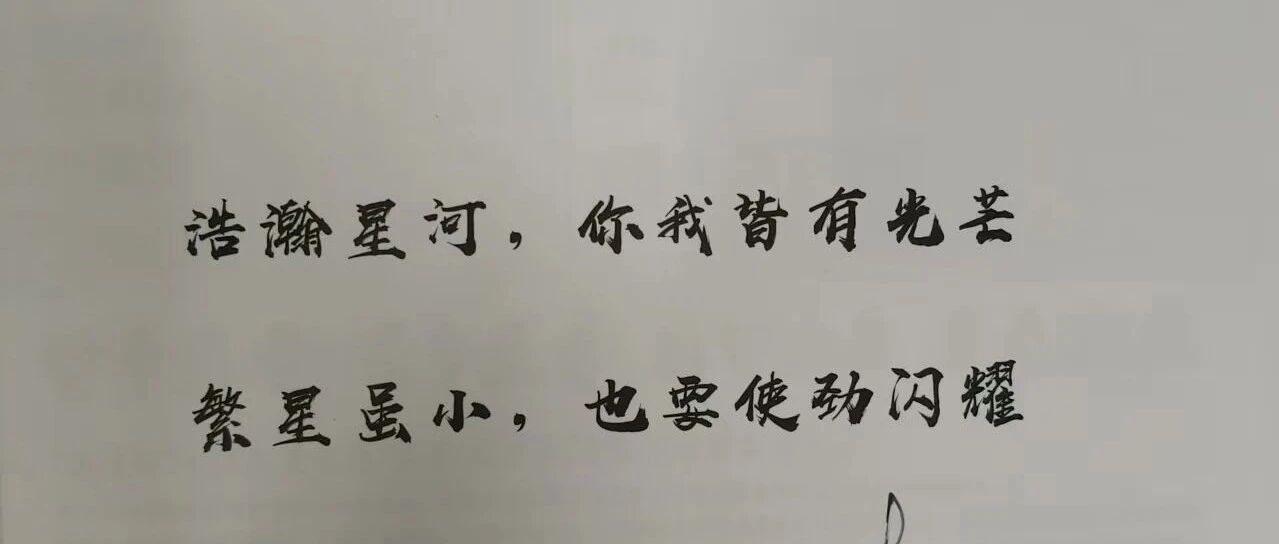 浩瀚星河，你我皆有光芒
繁星虽小，也要使劲闪耀